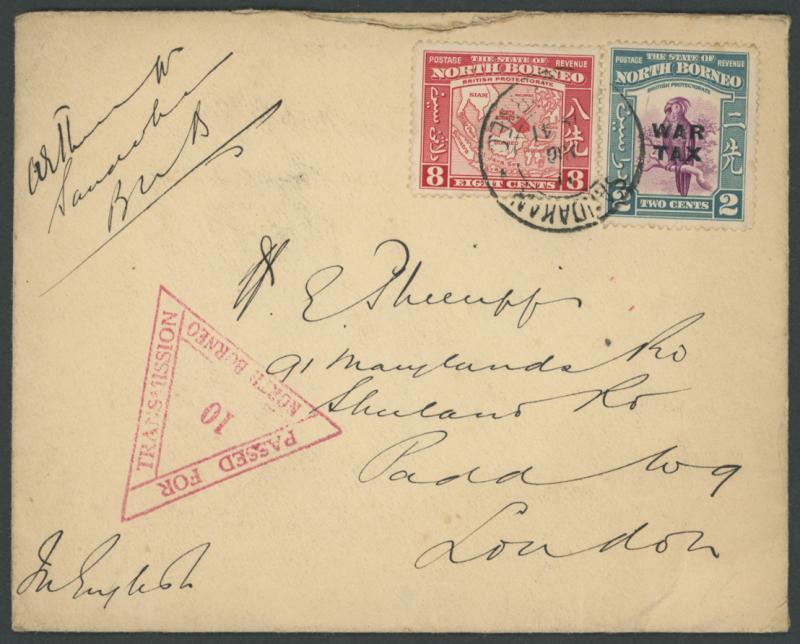 POSTAGE THE STATE OF REVENUE
NORTH BORNEO
BRITISH PROTECTORATE
SIAM
八先
8 EIGHT CENTS 8
POSTAGE THE STATE OF REVENUE
NORTH BORNEO
BRITISH PROTECTORATE
二先
WAR
TAX
2 TWO CENTS 2
AUG
41
Arthur W
Sandakan
B N B
E
91 Marylands Rd
Rd
Padd W9
London
TRANSMISSION
NORTH BORNEO
10
PASSED FOR
In English